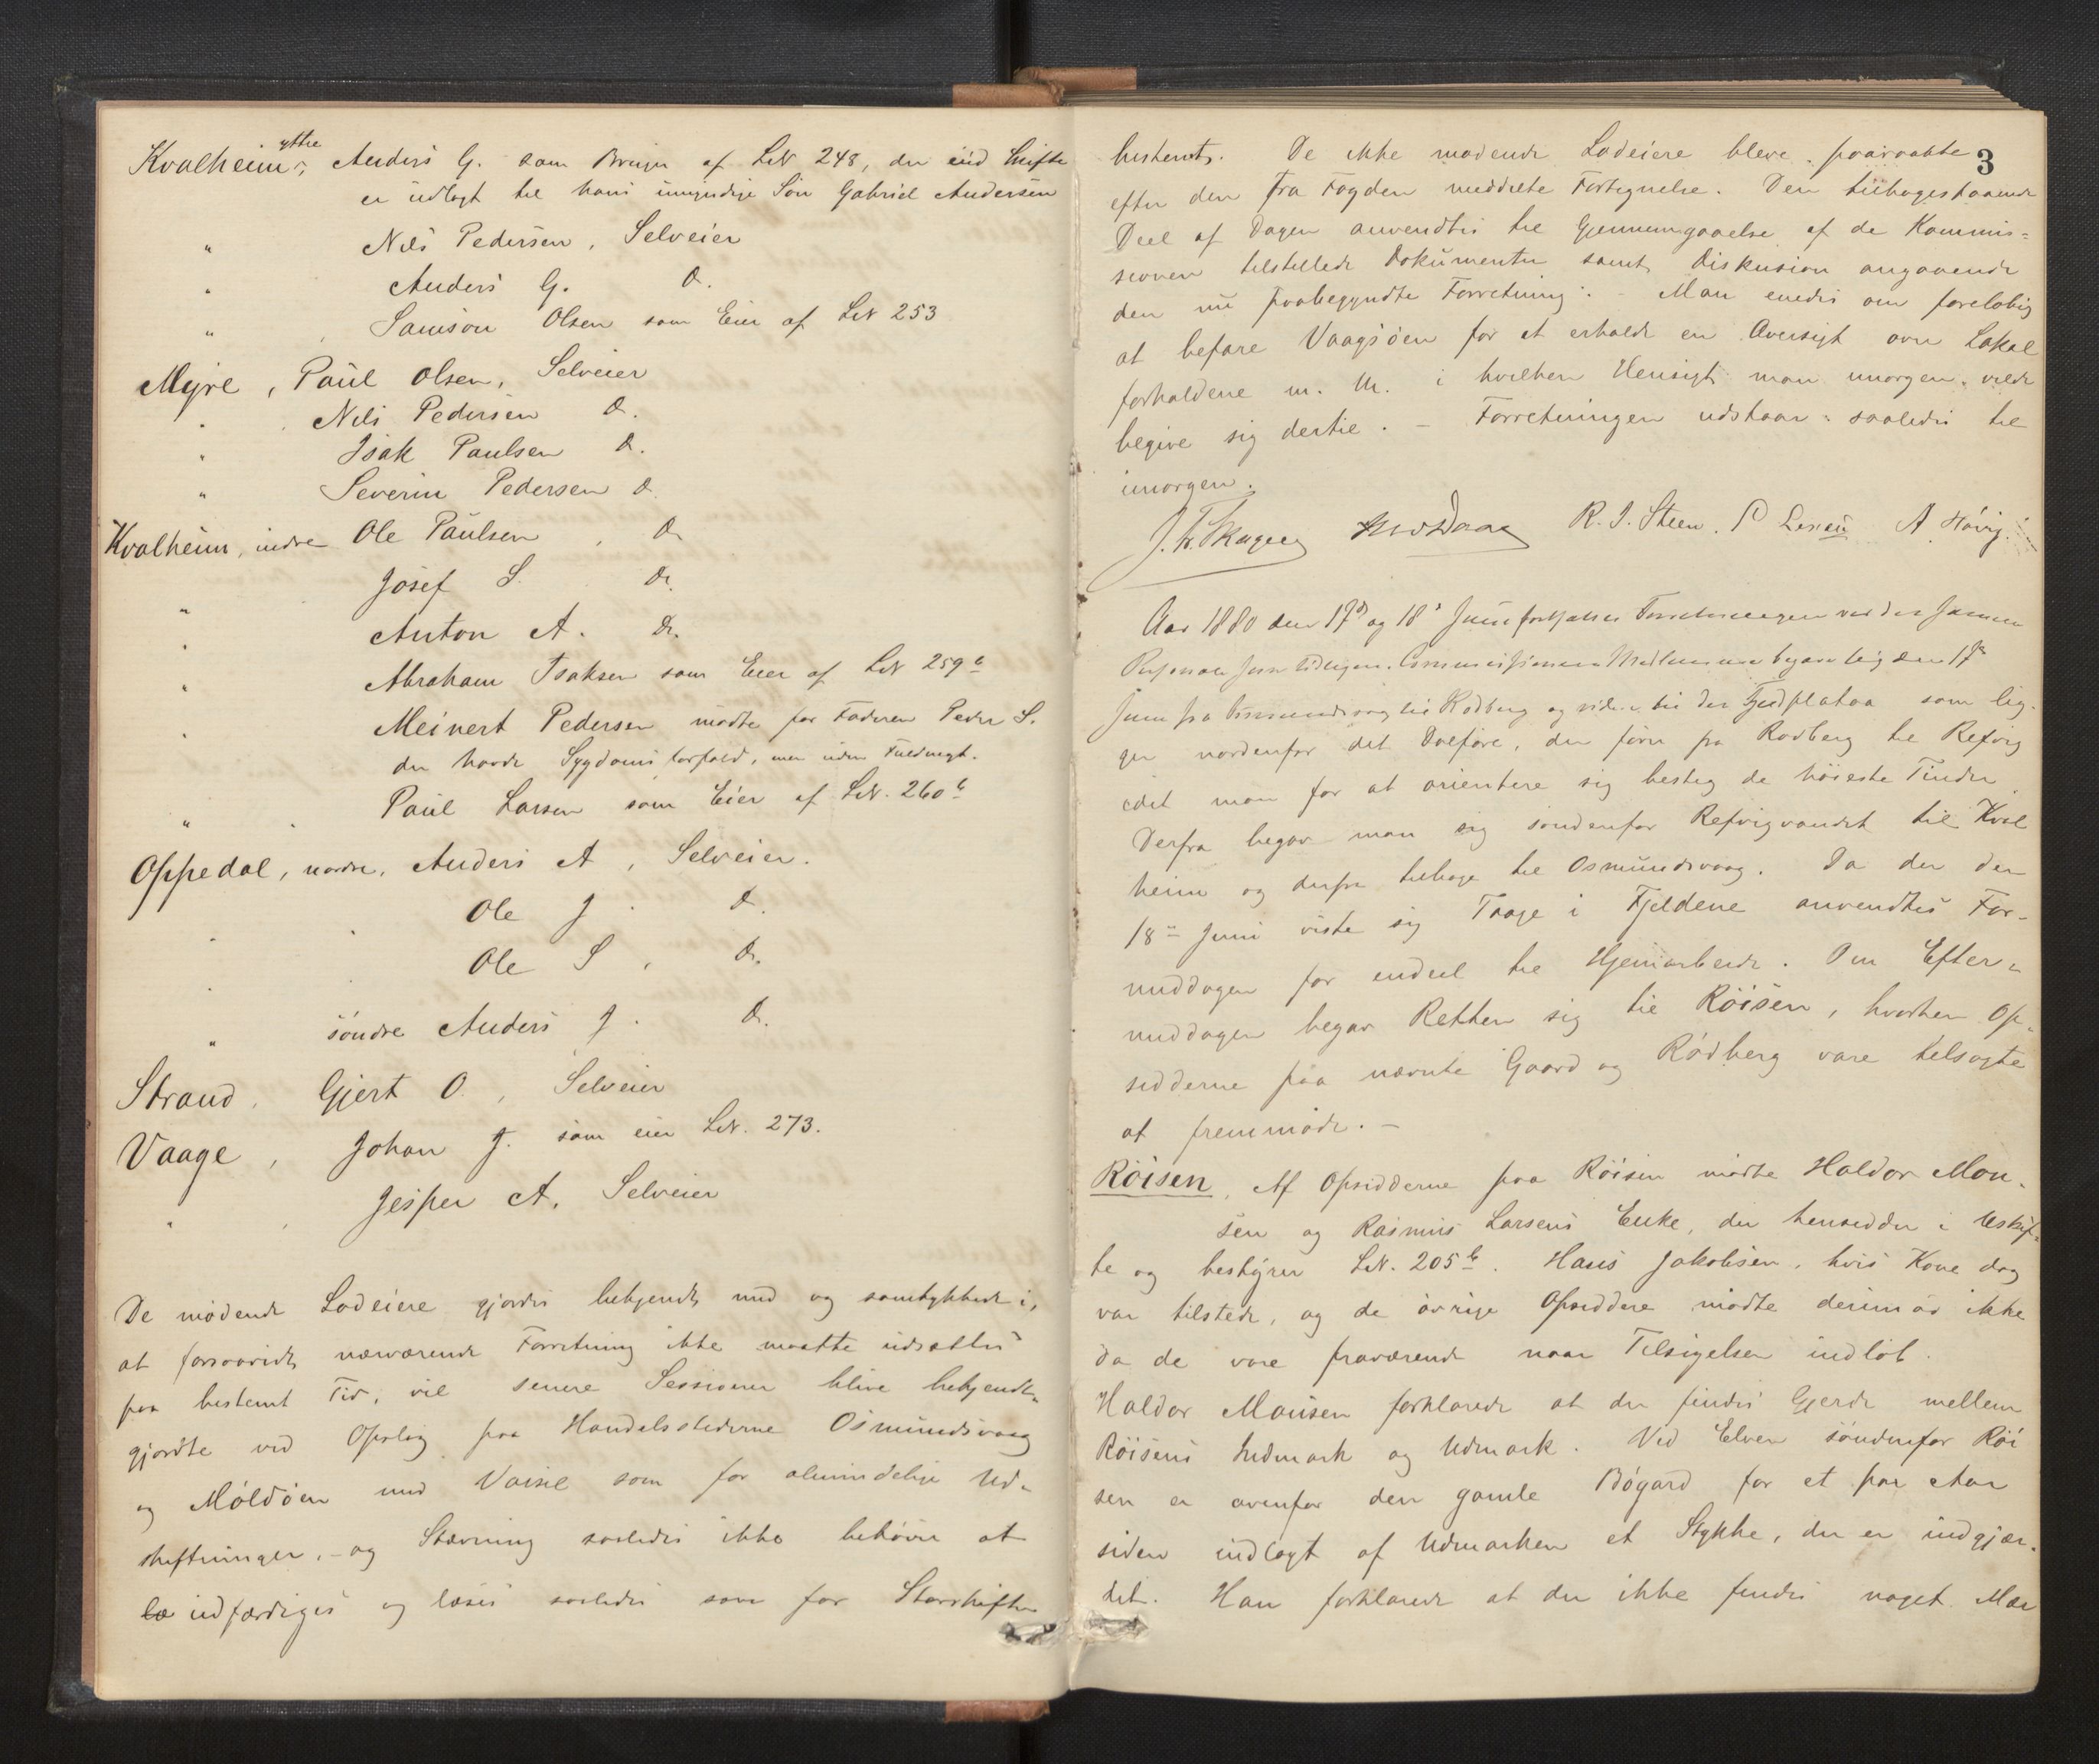 Kvalheim, yttre Anders G. som Bruger af LN 248, der ved Skifte
er udlagt til hans umyndige Søn Gabriel Andersen
" Nils Pedersen, Selveier
" Anders G. Do.
" Samson Olsen som Eier af LN 253
Myre, Paul Olsen, Selveier
" Nils Pedersen Do.
" Isak Paulsen Do.
" Severin Pedersen Do
Kvalheim, indre Ole Paulsen, Do
" Josef S. Do.
" Anton A. Do.
" Abraham Isaksen som Eier af LN 259b
" Meinert Pedersen mødte for Faderen Peder S.
der havde Sygdoms forfald, men uden Fuldmagt.
" Paul Larsen som Eier af LN. 260b
Oppedal, nordre, Anders A, Selveier.
" Ole J. Do.
" Ole S, Do.
" søndre Anders J. Do.
Strand, Gjert O., Selveier
Vaage, Johan J. som eier LN. 273.
" Jesper A, Selveier
De mødende Lodeiere gjordes bekjendt med og samtykkede i,
at forsaavidt nærværende Forretning ikke maatte udsættes
paa bestemt Tid, vil senere Sessioner blive bekjendt-
gjordte ved Opslag paa Handelsstederne Osmundsvaag
og Moldøen med Varsel som for almindelige Ud-
skiftninger, - og Stævning saaledes ikke behøver at
udfærdiges og læses saaledes som for Storskifter
3
bestemt. De ikke mødende Lodeiere bleve paaraabte
efter den fra Fogden meddelte Fortegnelse. Den tilbagestaaende
Deel af Dagen anvendtes til Gjennemgaaelse af de Kommis-
sionen tilstillede Dokumenter samt Diskusion angaaende
den nu paabegyndte Forretning. - Man enedes om foreløbig
at befare Vaagsøen for at erholde en Oversigt over Lokal
forholdene m. M. i hvilken Hensigt man imorgen vilde
begive sig dertil. - Forretningen udstaar saaledes til
imorgen.
R. J. Steen. A Høvig.
Aar 1880 den 17de og 18de Juni fortsattes Forretningen ved den samme
Personale som tidligere. Commissionens Medlemmer begave sig den 17de
Juni fra Osmundsvaag til Rødberg og videre til det Fjeldplataa som lig-
ger nordenfor det Dalføre, der fører fra Rødberg til Refvig
idet man for at orientere sig besteg de høieste Tinder.
Derfra begav man sig søndenfor Refvigvandet til Kval
heim og derfra tilbage til Osmundsvaag. Da der den
18de Juni viste sig Taage i Fjeldene anvendtes For-
middagen for endeel til Hjemarbeide. Om Efter-
middagen begav Retten sig til Röisen, hvorhen Op-
sidderne paa nævnte Gaard og Rødberg vare tilsagte
at fremmøde. -
Röisen. Af Opsidderne paa Röisen mødte Haldor Mon-
sen og Rasmus Larsens Enke, der hensidder i Uskif-
te og bestyrer LN. 205b. Hans Jakobsen, hvis Kone dog
var tilstede, og de øvrige Opsiddere mødte derimod ikke
da de vare fraværende naar Tilsigelsen indløb.
Haldor Monsen forklarede at der findes Gjerde mellem
Röisens Indmark og Udmark. Ved Elven søndenfor Röi
sen er ovenfor den gamle Bøgard for et par Aar
siden indlagt af Udmarken et Stykke, der er indgjær-
det. Han forklarede at der ikke findes noget Mær